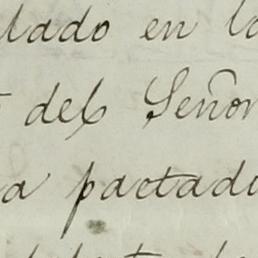 lado en la
del Señor
a pactada